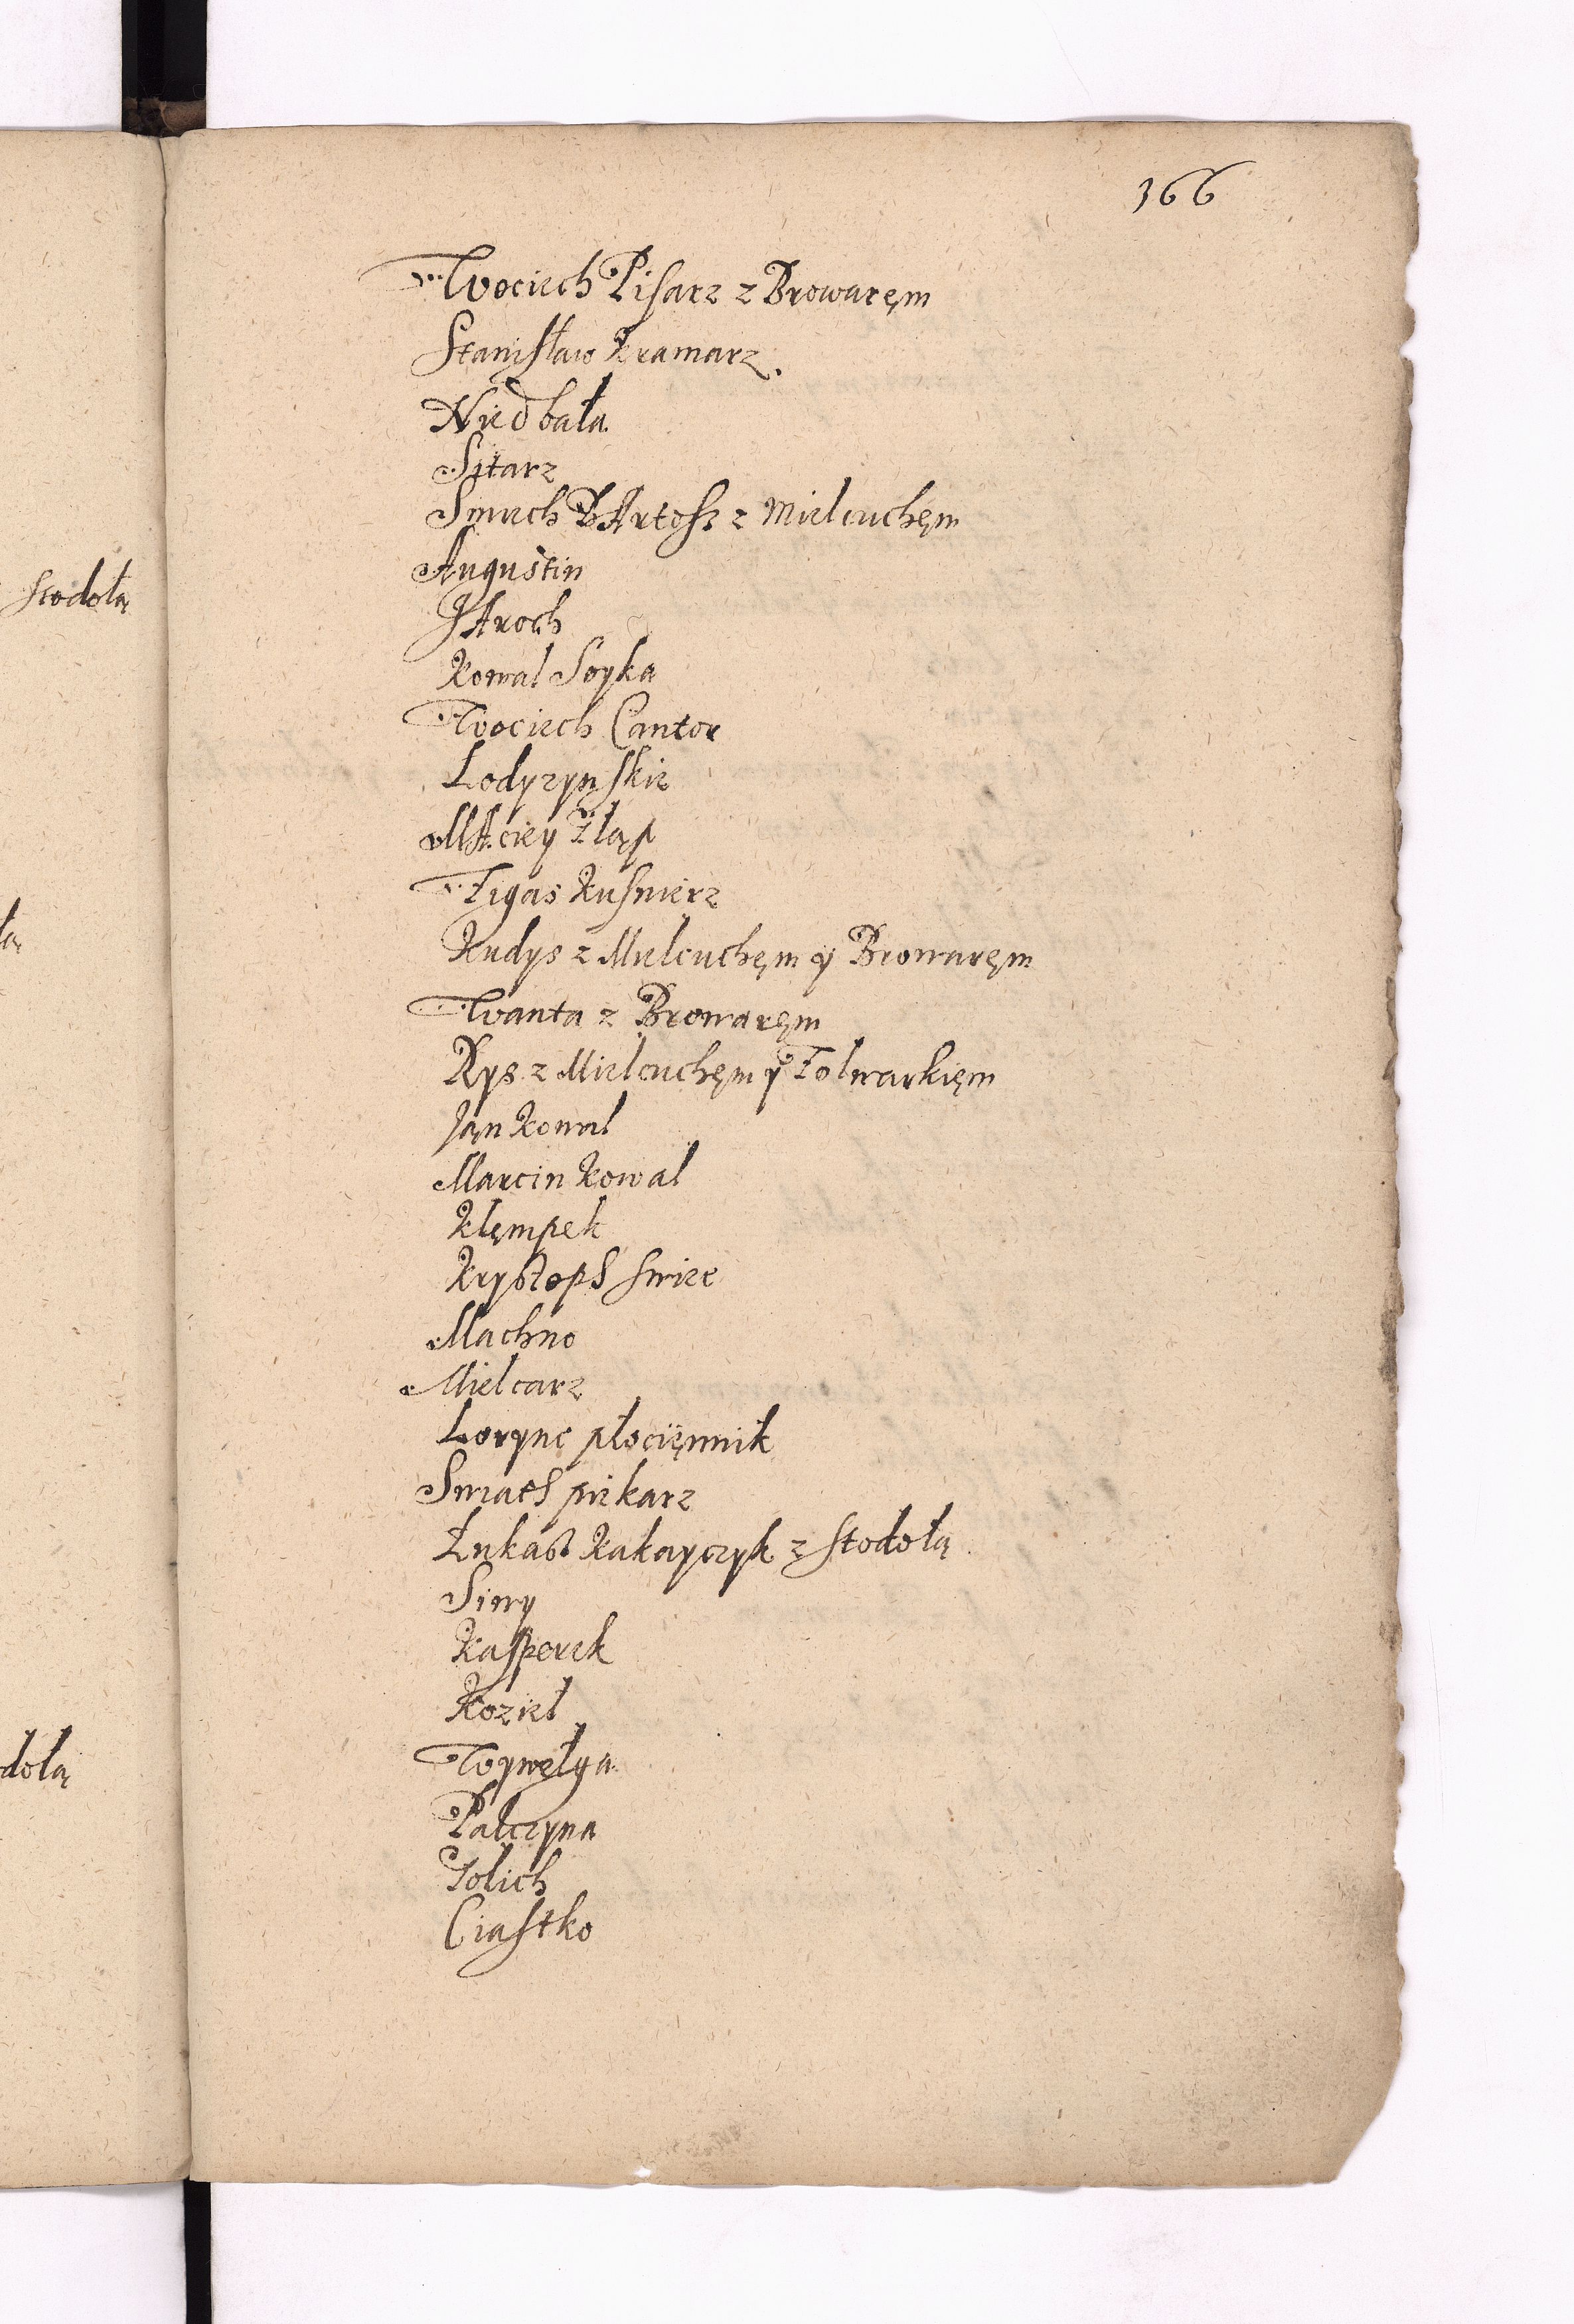 366
Wociech Pisarz z Browaręm
Stanisław Kramarz.
Niedbała
Sitarz
Smiech BArtosz z Mielcuchęm
Augustin
JAroch
Kowal Soyka
Wociech Cantor
Lodyzynskie
MAciey
Figas Kusnierz
Kudys z Mielcuchęm y Browaręm
Wanta z Browaręm
Rys z Mielcuchęm y Folwarkięm
Jąn Kowal
Marcin Kowal
Klęmpek
Krysztoph
Machno
Mielcarz
Lorync płocięnnik
piekarz
Łukasz Kakayczyk z stodołą
Siwy
Kasperek
Kozieł
Woywełga
Palczyna
Jolich
Ciastko
stodołą
łą
dołą